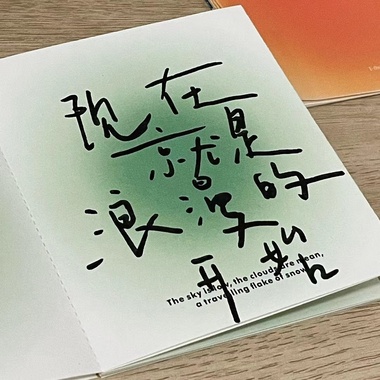 现在
就是
浪漫的
开始
The sky is low, the clouds are mean,
a travelling flake of snow